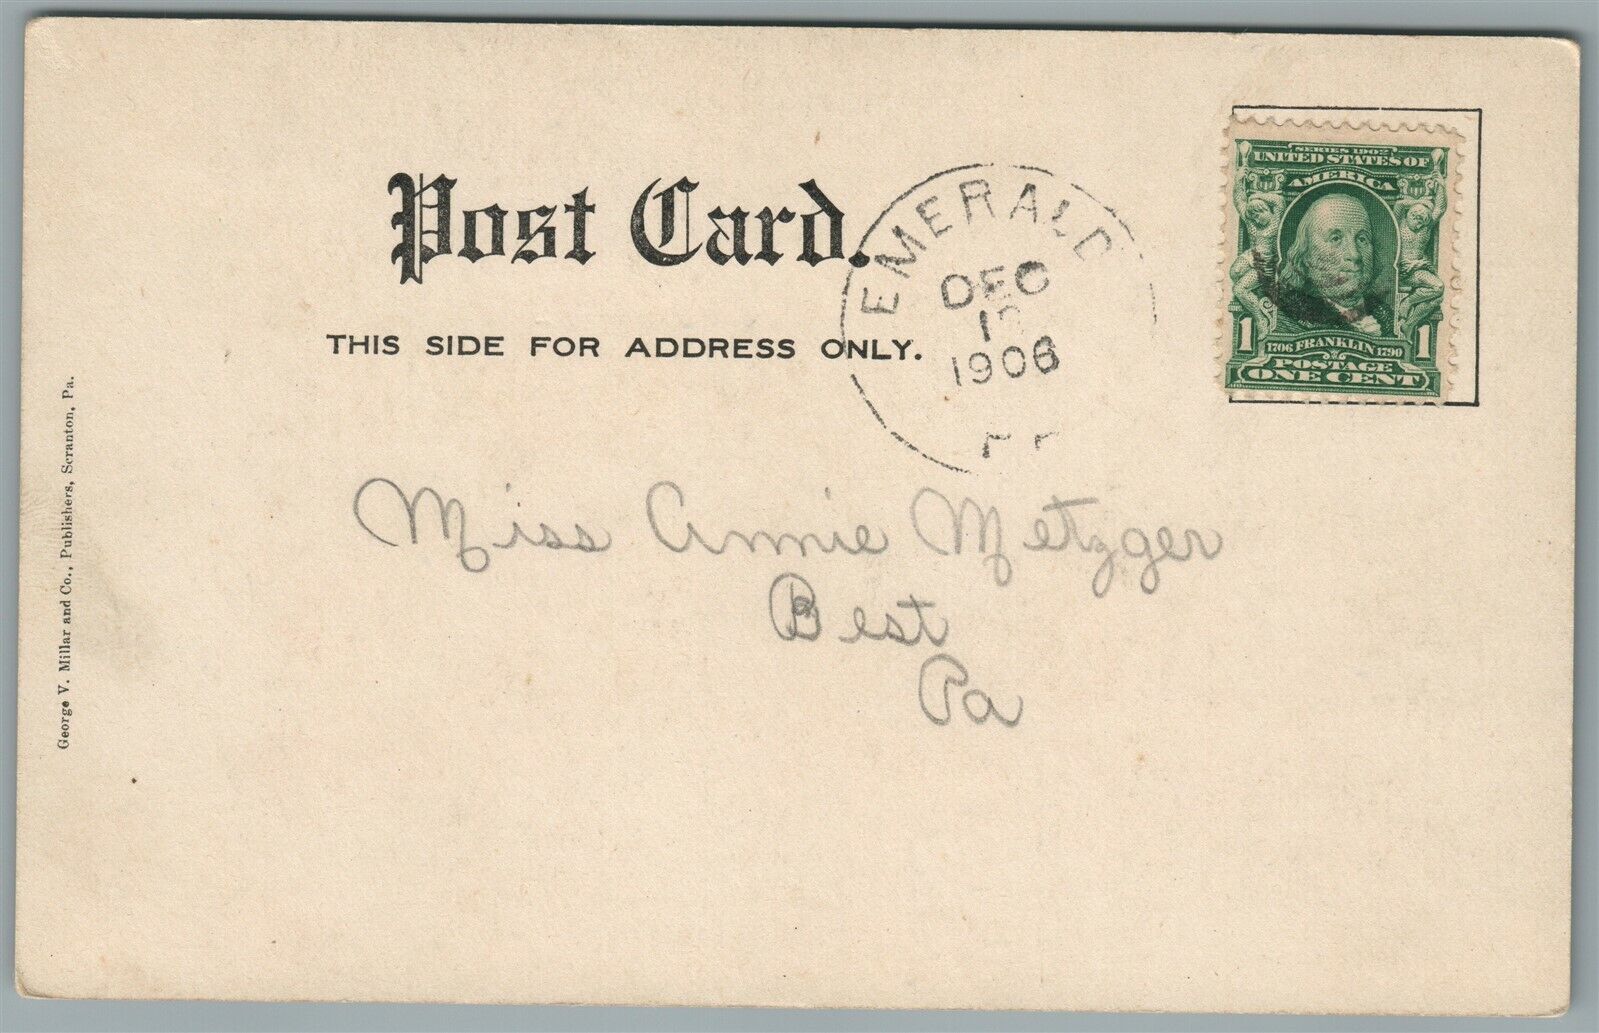 Post Card.
THIS SIDE FOR ADDRESS ONLY.
EMERALD
DEC
1906
SERIES 1902
UNITED STATES OF
AMERICA
1 1
1706 FRANKLIN 1790
POSTAGE
ONE CENT
Miss Annie Metzger
Best
Pa
George V. Millar and Co., Publishers, Scranton, Pa.